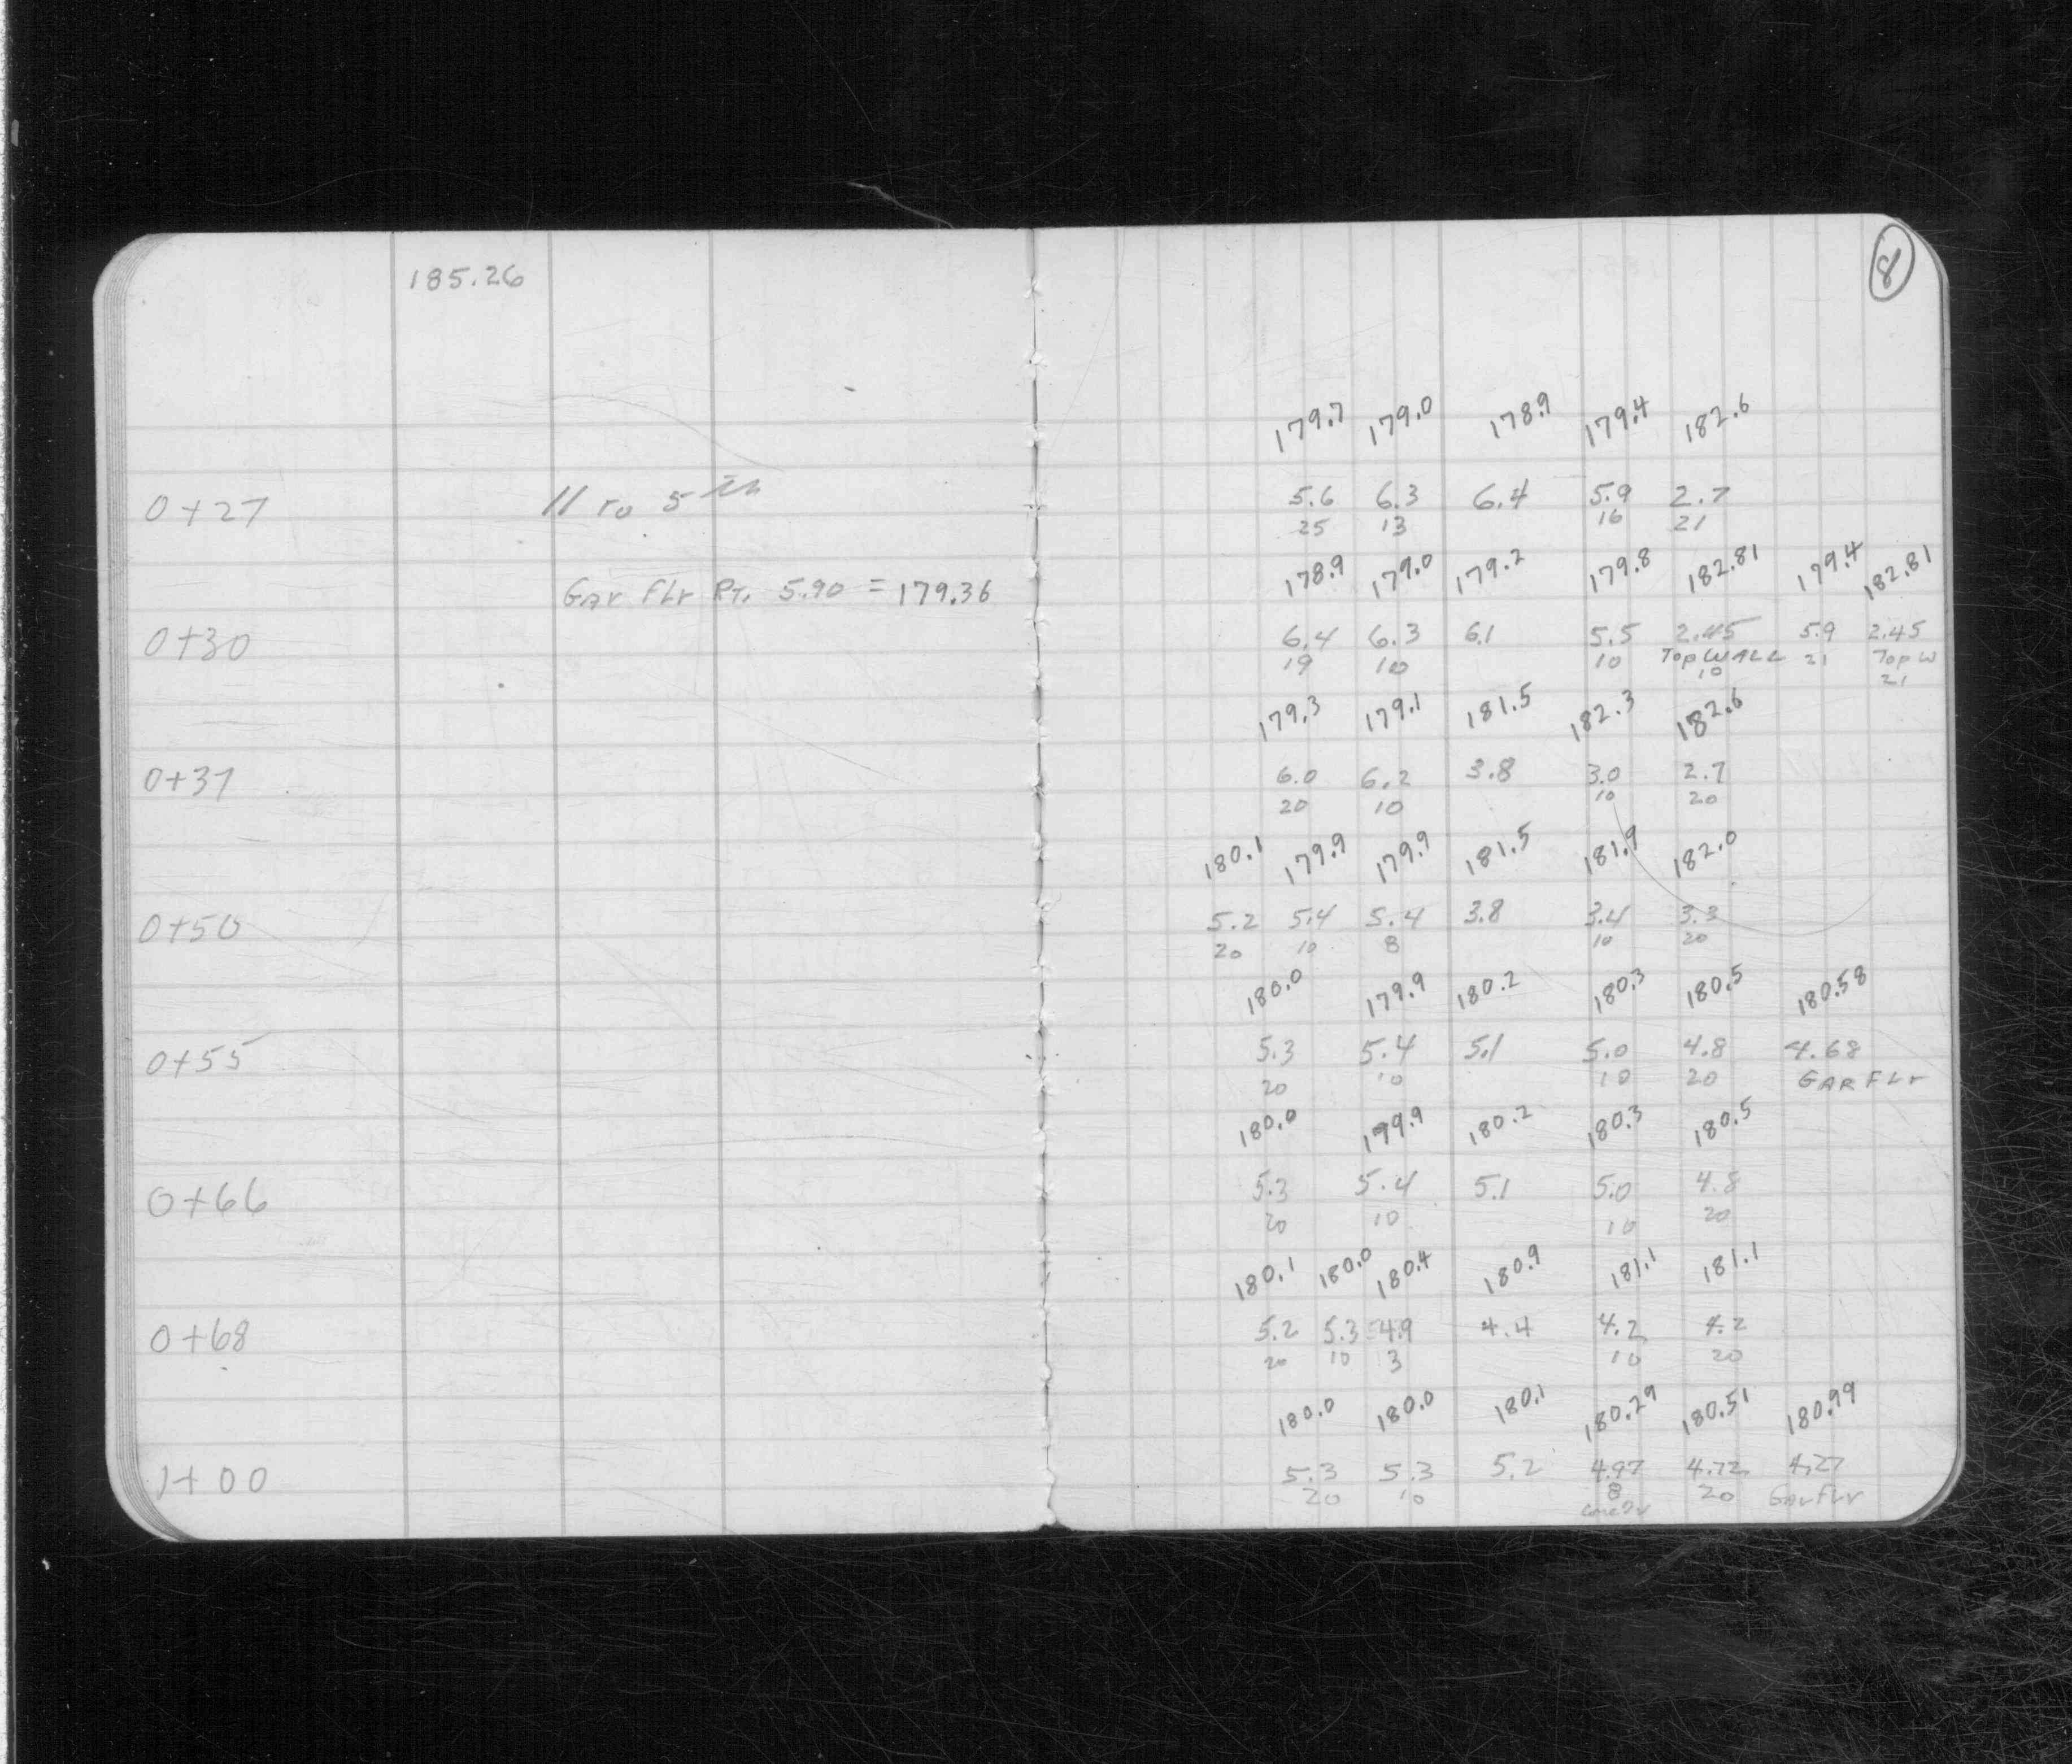 185.26
8
179.7 179.0 178.9 179.4 182.6
0+27 // to 5th 5.6 6.3 6.4 5.9 2.7
25 13 16 21
178.9 179.0 179.2 179.8 182.81 179.4 182.81
Gar Flr Rt. 5.90 = 179.36
0+30 6.4 6.3 6.1 5.5 2.45 5.9 2.45
19 10 10 Top WALL 21 Top W
10 21
179.3 179.1 181.5 182.3 182.6
0+37 6.0 6.2 3.8 3.0 2.7
20 10 10 20
180.1 179.9 179.9 181.5 181.9 182.0
0+50 5.2 5.4 5.4 3.8 3.4 3.3
20 10 8 10 20
180.0 179.9 180.2 180.3 180.5 180.58
0+55 5.3 5.4 5.1 5.0 4.8 4.68
20 10 10 20 GAR FLr
180.0 179.9 180.2 180.3 180.5
0+66 5.3 5.4 5.1 5.0 4.8
20 10 10 20
180.1 180.0 180.4 180.9 181.1 181.1
0+68 5.2 5.3 4.9 4.4 4.2 4.2
20 10 3 10 20
180.0 180.0 180.1 180.29 180.51 180.99
1+00 5.3 5.3 5.2 4.97 4.72 4.27
20 10 8 20 Gar Flr
conc Dr